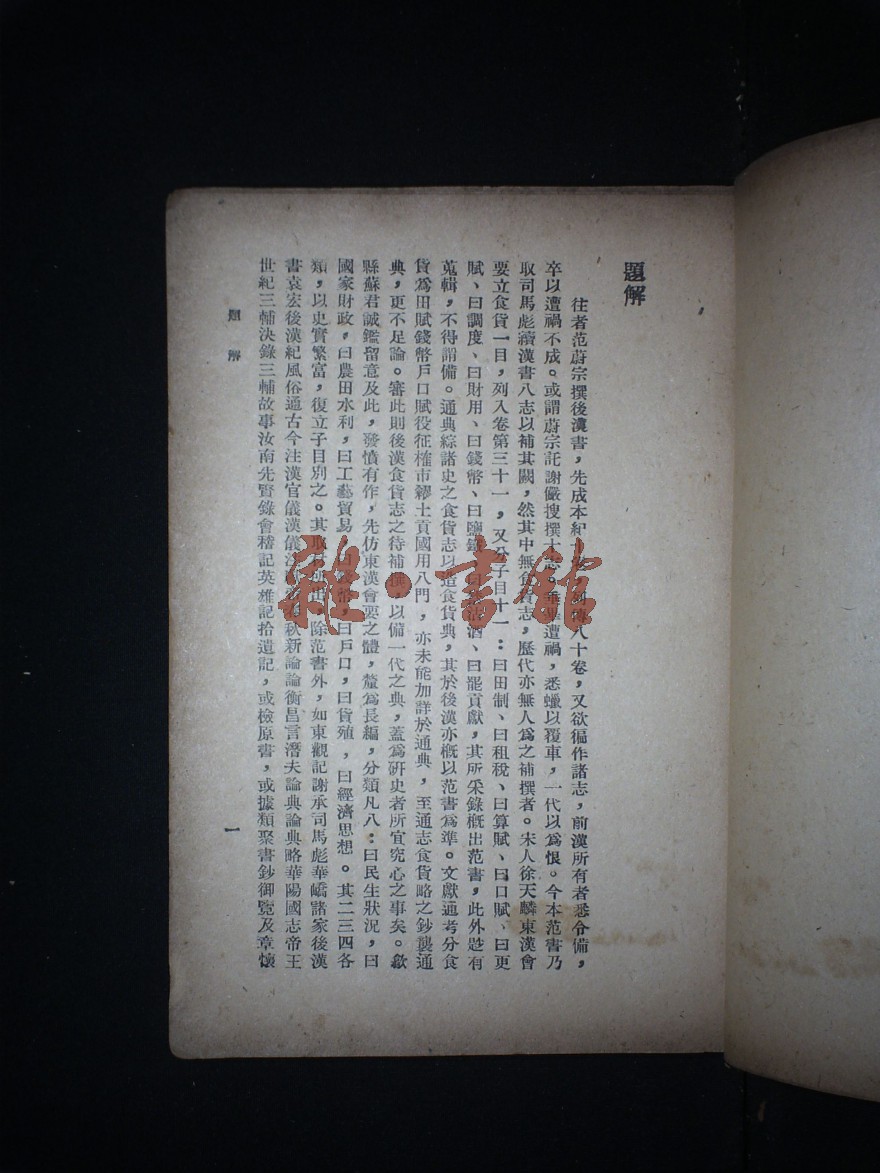 題解
往者范蔚宗撰後漢書，先成本紀卷，列傳八十卷，又欲徧作諸志，前漢所有者悉令備，
卒以遭禍不成。或謂蔚宗託謝儼搜撰十志。垂遭禍，悉蠟以覆車，一代以爲恨。今本范書乃
取司馬彪續漢書八志以補其闕，然其中無食貨志，歷代亦無人爲之補撰者。宋人徐天麟東漢會
要立食貨一目，列入卷第三十一，又分子目十一：曰田制、曰租稅、曰算賦、曰口賦、曰更
賦、曰調度、曰財用、曰錢幣、曰鹽鐵、酒、曰罷貢獻，其所采錄概出范書，此外尠有
蒐輯，不得謂備。通典綜諸史之食貨志以造食貨典，其於後漢亦概以范書爲準。文獻通考分食
貨爲田賦錢幣戶口賦役征榷市糴土貢國用八門，亦未能加詳於通典，至通志食貨略之鈔襲通
典，更不足論。審此則後漢食貨志之待補撰，以備一代之典，蓋爲研史者所宜究心之事矣。歙
縣蘇君誠鑑留意及此，發憤有作，先仿東漢會要之體，釐爲長編，分類凡八：曰民生狀況，曰
國家財政，曰農田水利，曰工藝貿易，曰幣，曰戶口，曰貨殖，曰經濟思想。其二三四各
類，以史實繁富，復立子目別之。其取材，除范書外，如東觀記謝承司馬彪華嶠諸家後漢
書袁宏後漢紀風俗通古今注漢官儀漢儀注秋新論論衡昌言潛夫論典論典略華陽國志帝王
世紀三輔決錄三輔故事汝南先賢錄會稽記英雄記拾遺記，或檢原書，或據類聚書鈔御覽及章懷
題解
一
雜·書館